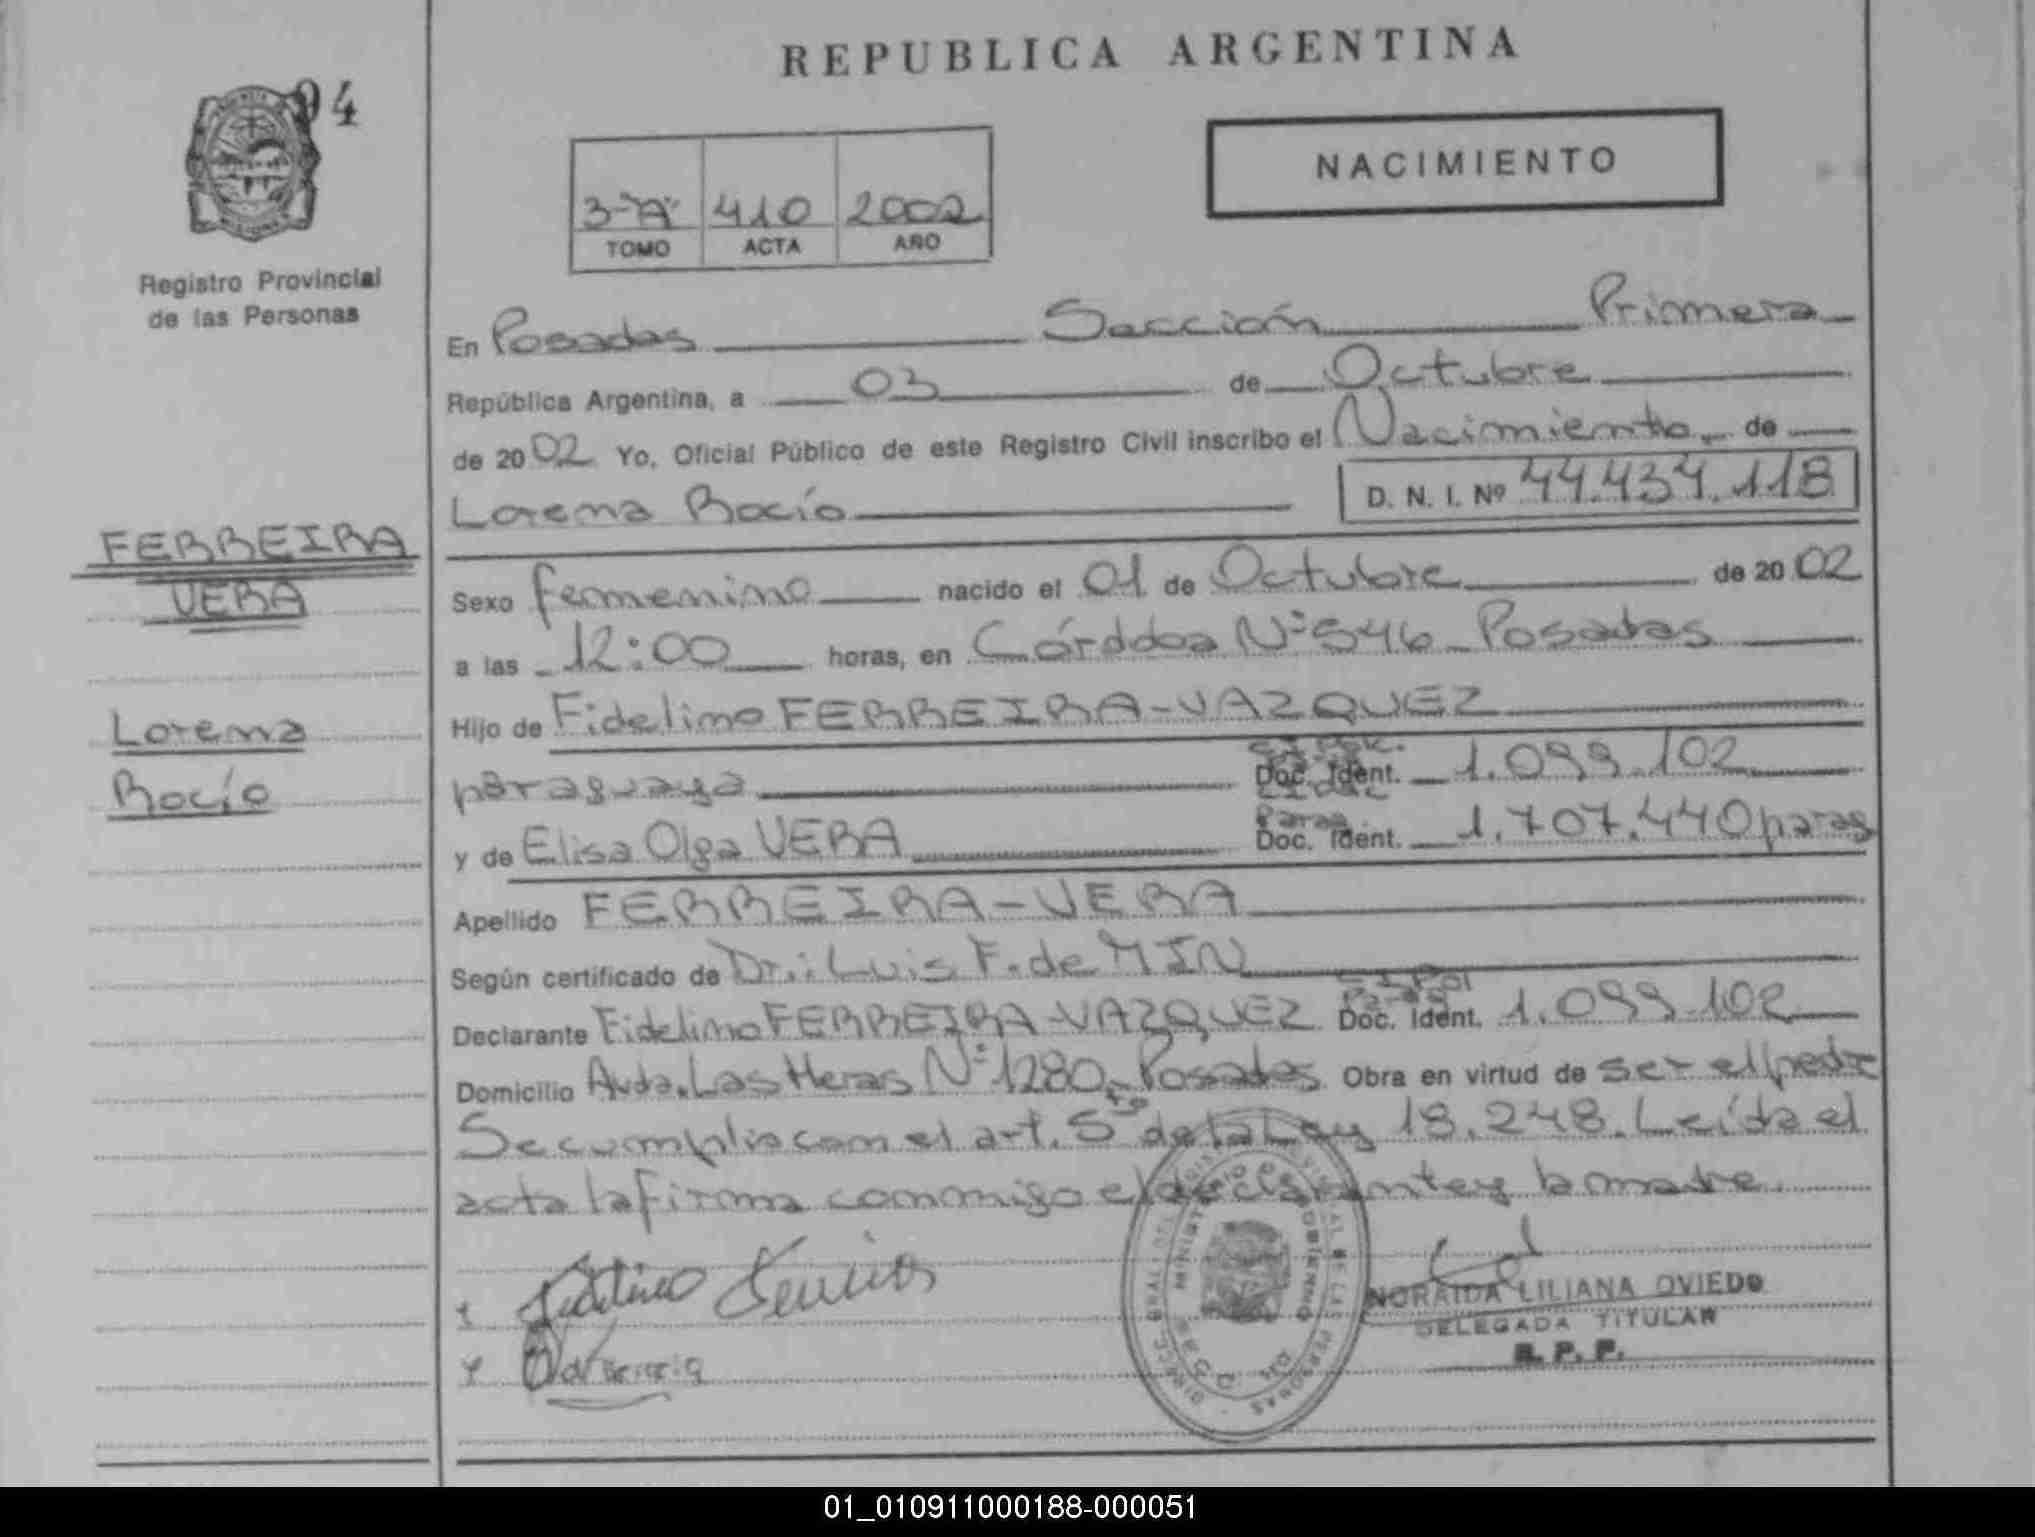 REPUBLICA ARGENTINA
94
NACIMIENTO
3-"A" 410 2002
TOMO ACTA AÑO
Registro Provincial
de las Personas
En Posadas Sección Primera
República Argentina, a 03 de Octubre
de 2002 Yo, Oficial Público de este Registro Civil inscribo el Nacimiento de
Lorena Rocío D. N. I. Nº 44.434.118
FERREIRA
VERA
Lorena
Rocío
Sexo femenino nacido el 01 de Octubre de 2002
a las 12:00 horas, en Córdoba Nº 546 Posadas
Hijo de Fidelino FERREIRA-VAZQUEZ
paraguaya Doc. Ident. 1.099.102
y de Elisa Olga VERA Doc. Ident. 1.707.440 parag
Apellido FERREIRA-VERA
Según certificado de Dr.: Luis F. de MIN
Declarante Fidelino FERREIRA-VAZQUEZ Doc. Ident. 1.099.102
Domicilio Avda. Las Heras Nº 1280 Posadas Obra en virtud de ser el padre
Se cumplio con el art. 5º de la Ley 18.248. Leída el
acta la firma conmigo el declarante y la madre.
NORAIDA LILIANA OVIEDO
DELEGADA TITULAR
R. P. P.
01_010911000188-000051